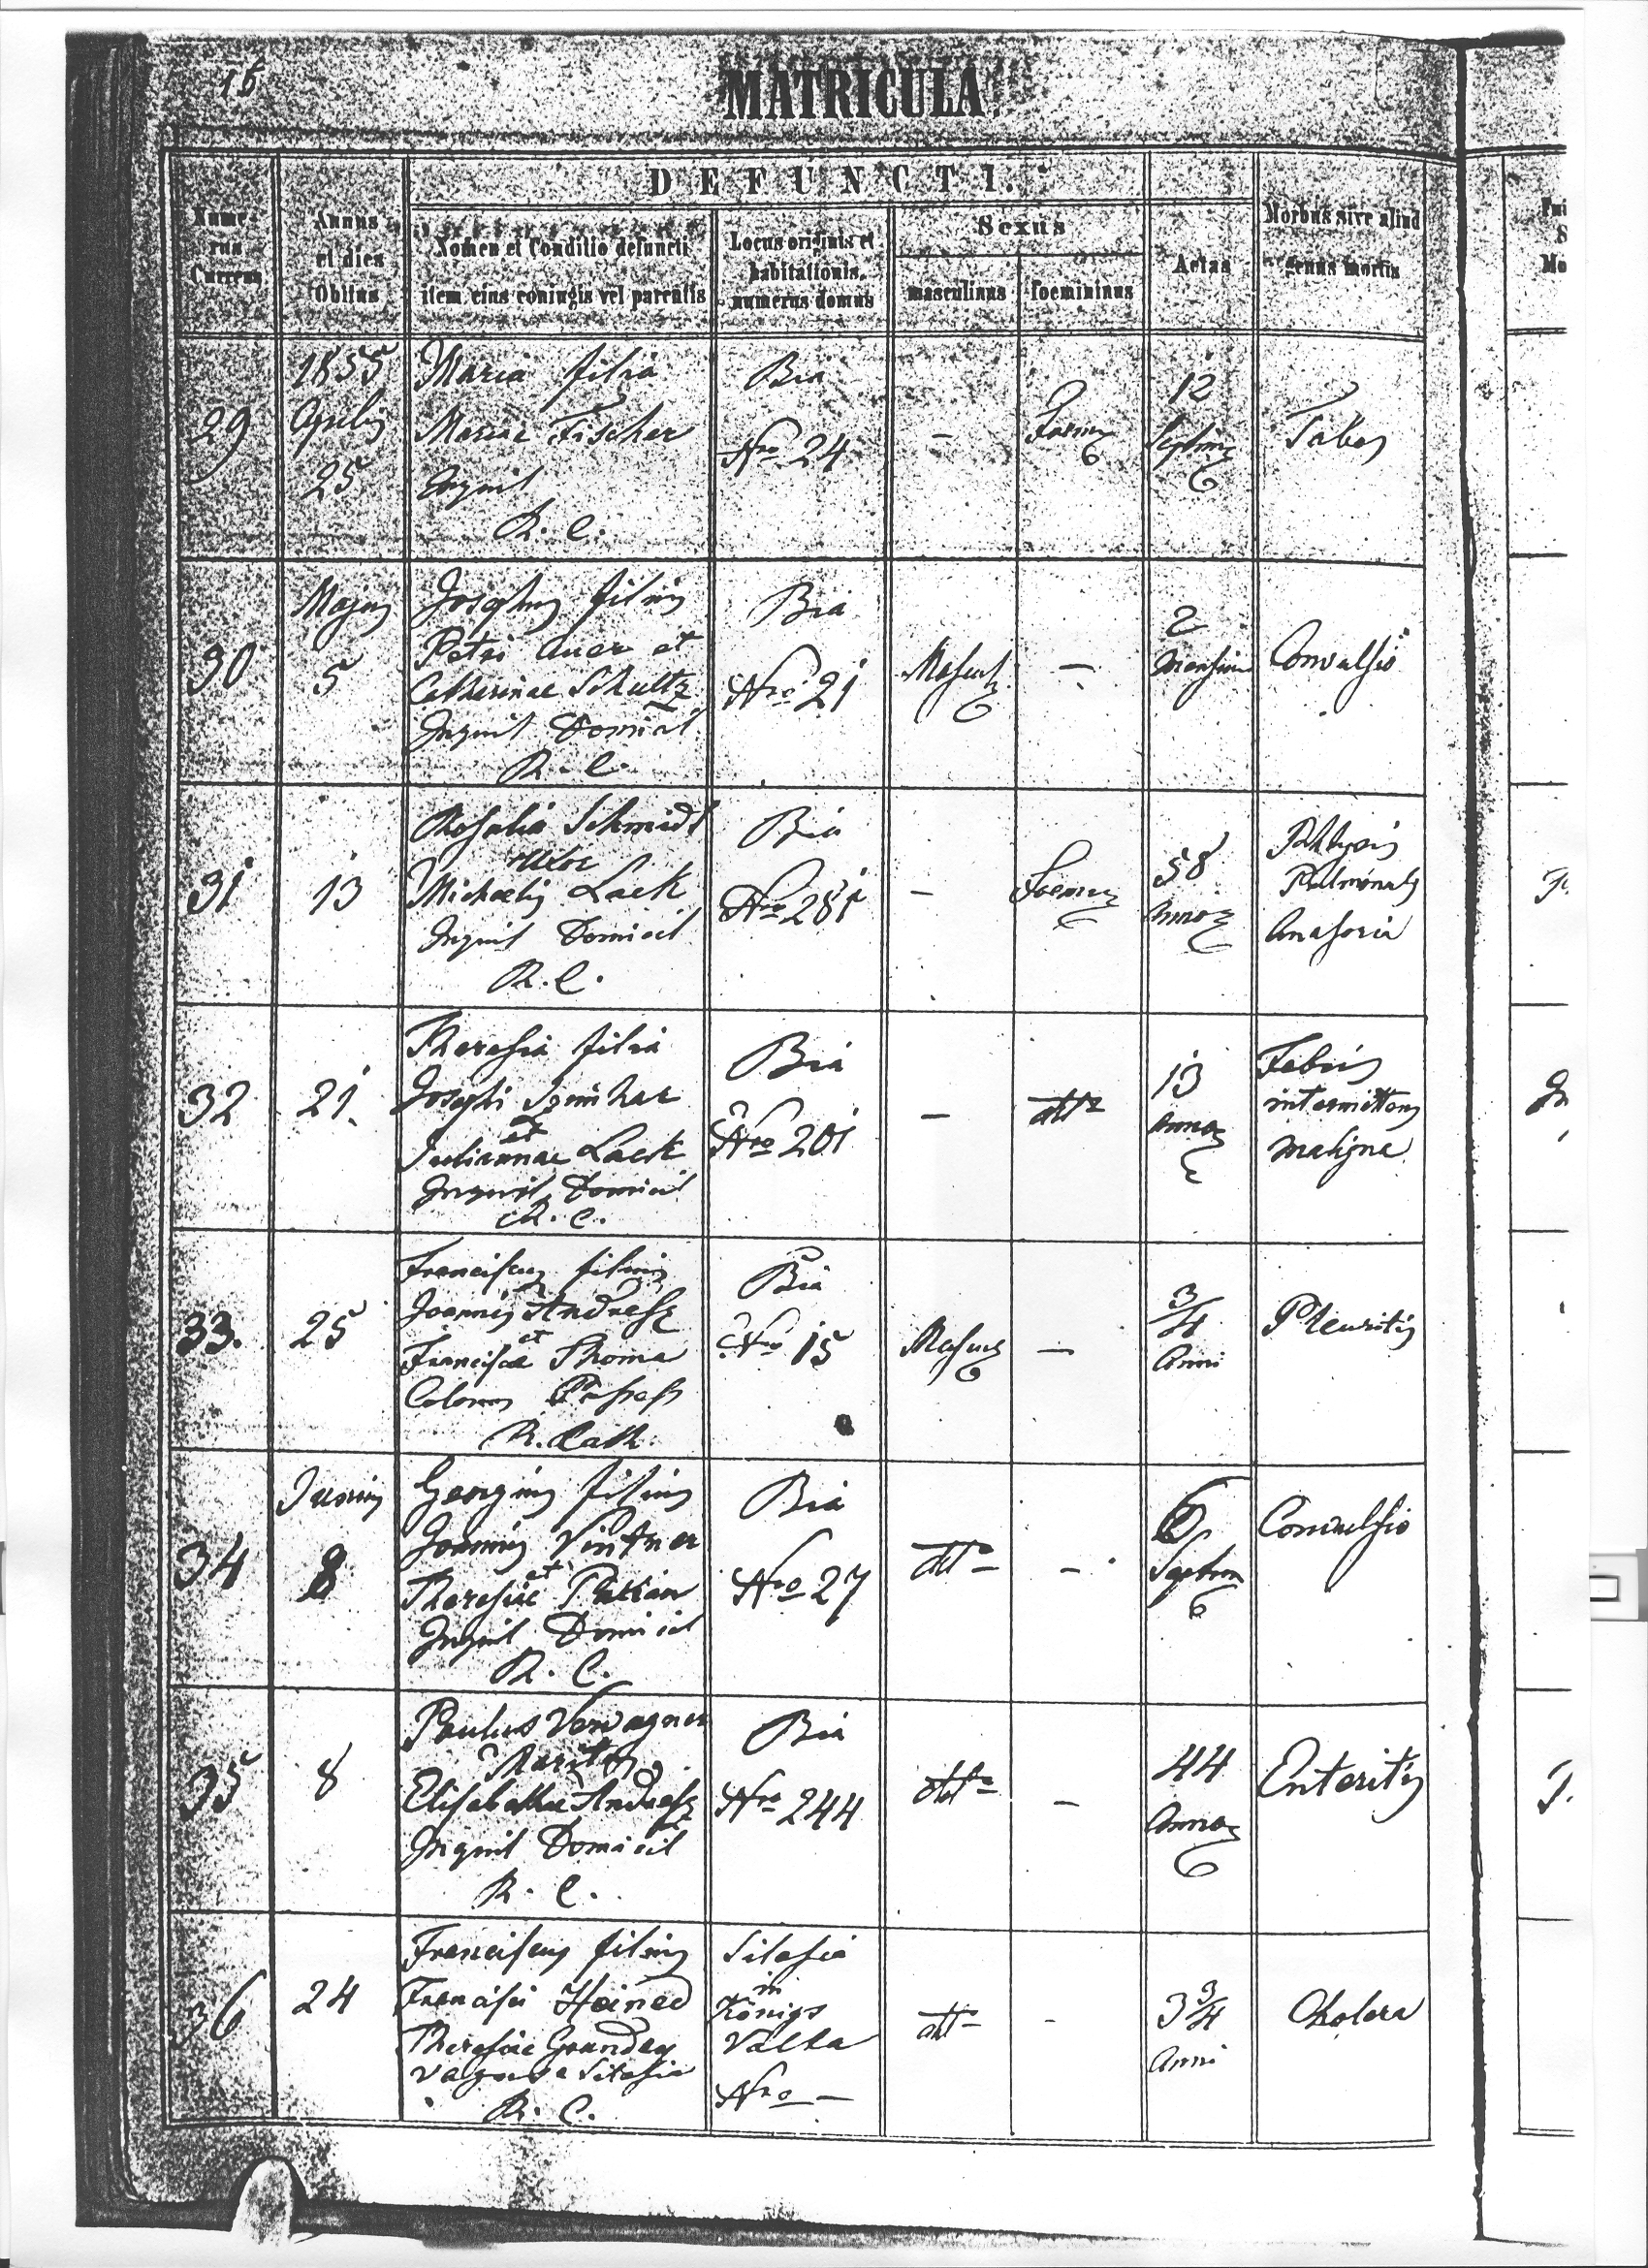 16
MATRICULA
DEFUNCTI.
Nume-
rus
Currens
Annus
et dies
Obitus
Nomen et Conditio defuncti
item eius coniugis vel parentis
Locus originis et
habitationis.
numerus domus
Sexus
masculinus
foemininus
Aetas
Morbus sive aliud
genus mortis
29
1855
Aprilis
25
Maria filia
Mariae Fischer
Inquil
R. C.
Bia
Nro 24
-
Foemin
12
Septim
Tabes
30
Majus
5
Josephus filius
Petri Auer et
Catherinae Schultz
Inquil Domicil
R. C.
Bia
Nro 21
Mascul
-
2
Mensium
Convulsio
31
13
Rosalia Schmidt
uxor
Michaelis Lack
Inquil Domicil
R. C.
Bia
Nro 281
-
Foemin
58
Annor
Phtysis
Pulmonalis
Anasoria
32
21.
Theresia filia
Josephi
et
Juliannae Lack
Inquil Domicil
R. C.
Bia
Nro 201
-
dtto
13
Annor
Febris
intermittens
maligna
33.
25
Franciscus filius
Joannis Andresz
et
Franciscae Thoma
Colonus
R. Cath.
Bia
Nro 15
Mascul
-
3/4
Anni
Pleuritis
34
Junius
8
Georgius filius
Joannis Vintner
et
Theresiae
Inquil Domicil
R. C.
Bia
Nro 27
dtto
-
6
Septim
Convulsio
35
8
Paulus
Maritus
Elisabethae Andresz
Inquil Domicil
R. C.
Bia
Nro 244
dtto
-
44
Annor
Enteritis
36
24
Franciscus filius
Francisci Heined
Theresiae
vagus e Silesia
R. C.
Silesia
in
Königs
Valda
Nro -
dtto
-
3 3/4
Anni
Cholera